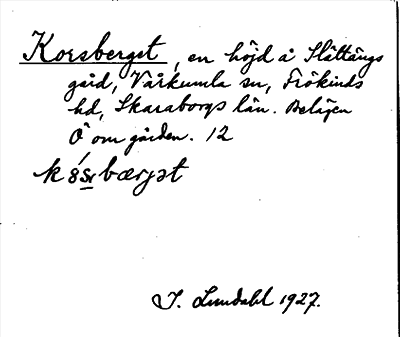 Korsberget, en höjd å Slättängs
gård, Vårkumla sn, Frökinds
hd, Skaraborgs län. Belägen
Ö om gården. 12
I. Lundahl 1927.